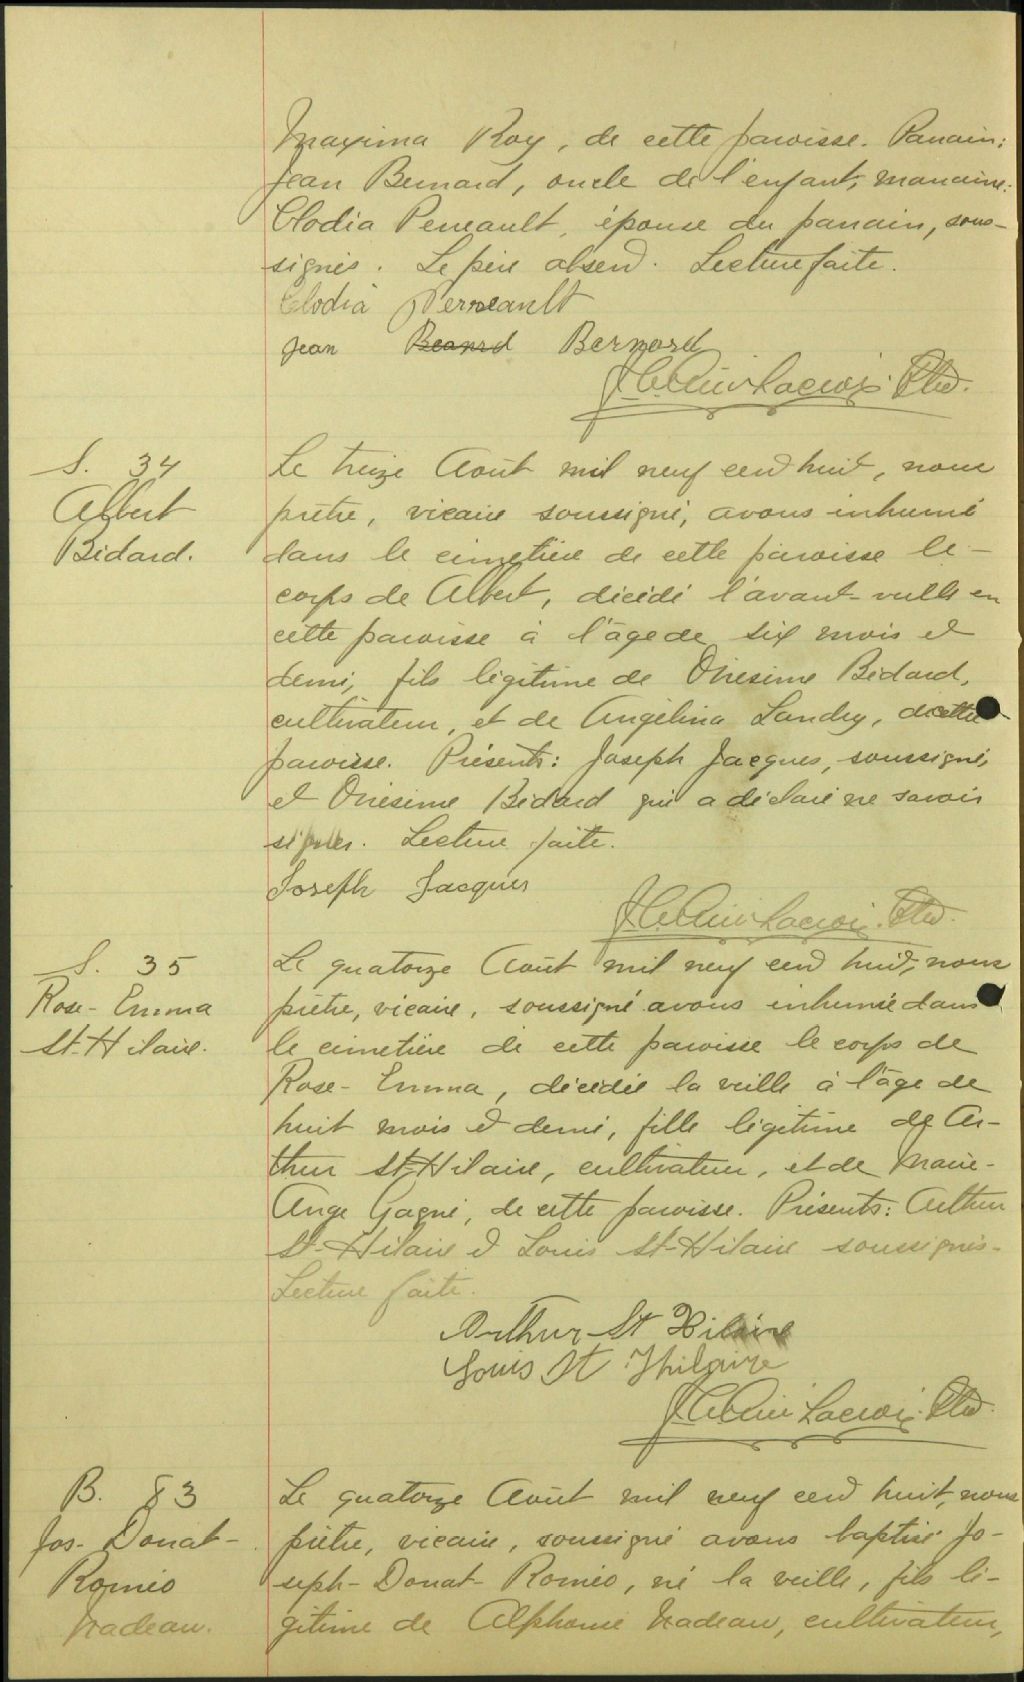 Maxima Roy, de cette paroisse. Parrain:
Jean Bernard, oncle de l'enfant, marraine:
Clodia Perreault, épouse du parrain, sous-
signés. Le père absent. Lecture faite.
Clodia Perreault
Jean Beanrd Bernard
Lacroix Ptre.
S. 34
Albert
Bédard.
Le treize Août mil neuf cent huit, nous
prêtre, vicaire soussigné, avons inhumé
dans le cimetière de cette paroisse le-
corps de Albert, décédé l'avant-veille en
cette paroisse à l'âge de six mois et
demi, fils légitime de Onésime Bédard,
cultivateur, et de Angélina Landry, de cette
paroisse. Présents: Joseph Jacques, soussigné,
et Onésime Bédard qui a déclaré ne savoir
signer. Lecture faite.
Joseph Jacques
Lacroix. Ptre.
S. 35
Rose-Emma
St-Hilaire.
Le quatorze Août mil neuf cent huit, nous
prêtre, vicaire, soussigné avons inhumé dans
le cimetière de cette paroisse le corps de
Rose-Emma, décédée la veille à l'âge de
huit mois et demi, fille légitime de Ar-
thur St-Hilaire, cultivateur, et de Marie-
Ange Gagné, de cette paroisse. Présents: Arthur
St-Hilaire et Louis St-Hilaire soussignés.
Lecture faite.
Arthur St Hilaire
Louis St Hilaire
Lacroix. Ptre.
B. 83
Jos-Donat-
Roméo
Nadeau.
Le quatorze Août mil neuf cent huit, nous
prêtre, vicaire, soussigné avons baptisé Jo-
seph-Donat-Roméo, né la veille, fils lé-
gitime de Alphonse Nadeau, cultivateur,